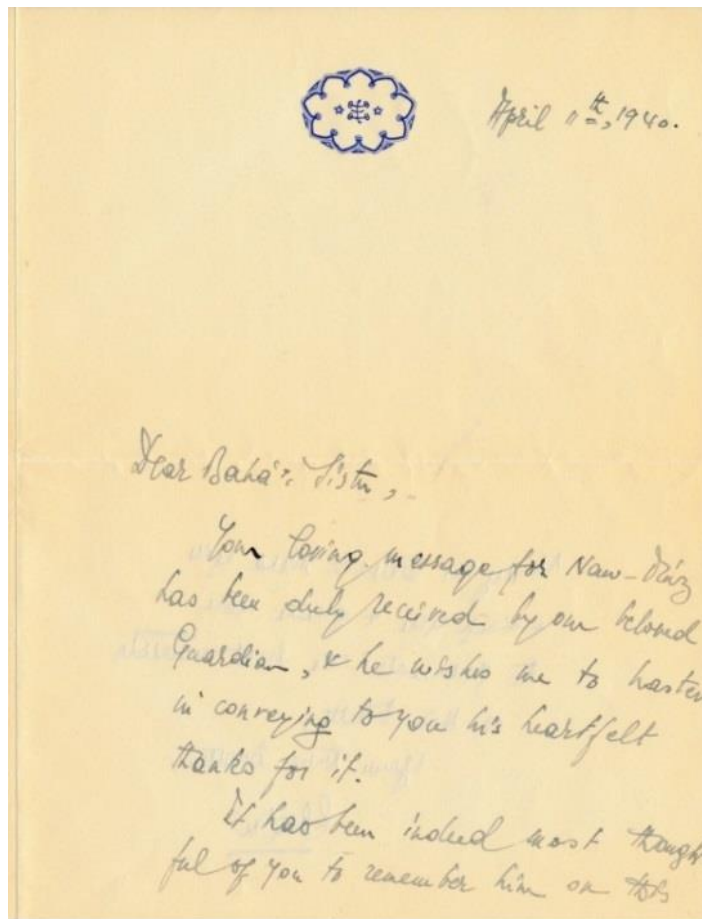 April 11th, 1940.
Dear Bahá'í Sister,
Your loving message for Naw-Rúz
has been duly received by our beloved
Guardian, & he wishes me to hasten
in conveying to you his heartfelt
thanks for it.
It has been indeed most thought
ful of you to remember him on this